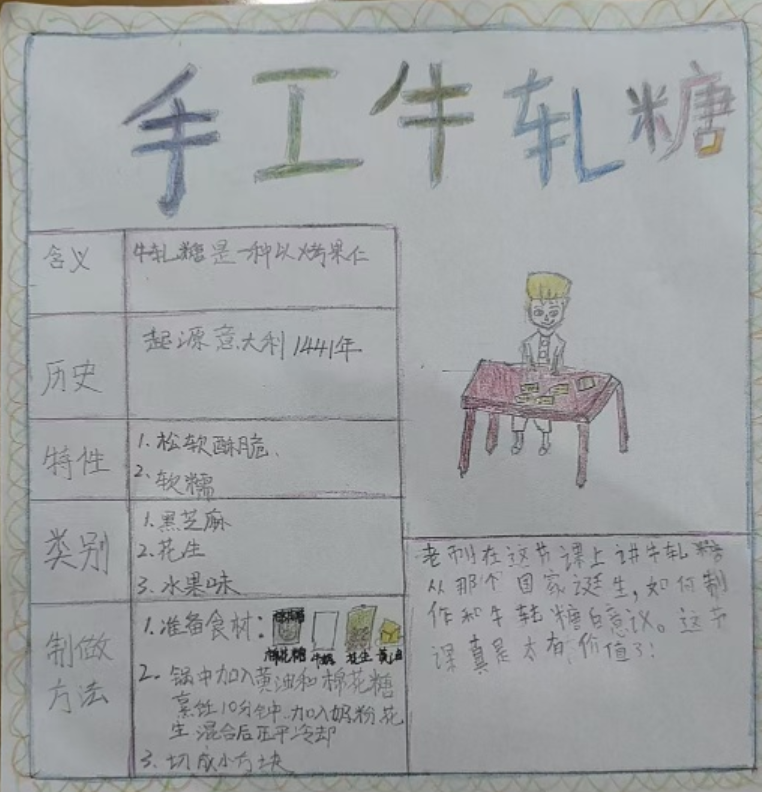 手工牛轧糖
含义
牛轧糖是一种以烤果仁
历史
起源意大利1441年
特性
1.松软酥脆、
2.软糯
类别
1.黑芝麻
2.花生
3.水果味
制做
方法
1.准备食材：
棉花糖 牛奶 花生 黄油
2.锅中加入黄油和棉花糖
烹饪10分钟.加入奶粉花
生混合后压平冷却
3.切成小方块
老师在这节课上讲牛轧糖
从那个国家诞生，如何制
作和牛轧糖的意义。这节
课真是太有价值了！